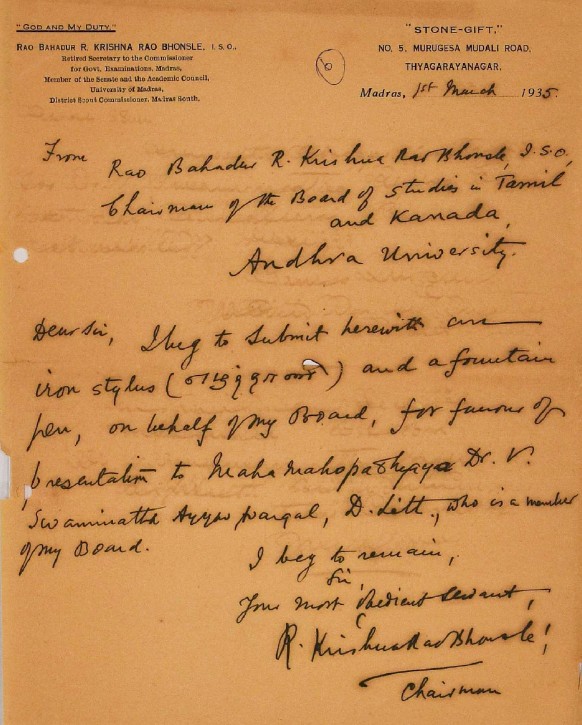 "GOD AND MY DUTY."
RAO BAHADUR R. KRISHNA RAO BHONSLE, I. S. O.,
Retired Secretary to the Commissioner
for Govt. Examinations, Madras,
Member of the Senate and the Academic Council,
University of Madras,
District Scout Commissioner, Madras South.
"STONE-GIFT,"
NO. 5, MURUGESA MUDALI ROAD,
THYAGARAYANAGAR.
Madras, 1st March 1935.
From Rao Bahadur R. Krishna Rao Bhonsle, I.S.O,
Chairman of the Board of Studies in Tamil
and Kanada,
Andhra University.
Dear Sir, I beg to submit herewith an
iron stylus (எழுத்தாணி) and a fountain
pen, on behalf of my Board, for favour of
presentation to Mahamahopathyaya Dr. V.
Swaminatha Ayyar Avargal, D. Litt., who is a member
of my Board.
I beg to remain,
Sir,
Your most obedient servant,
R. Krishna Rao Bhonsle,
Chairman